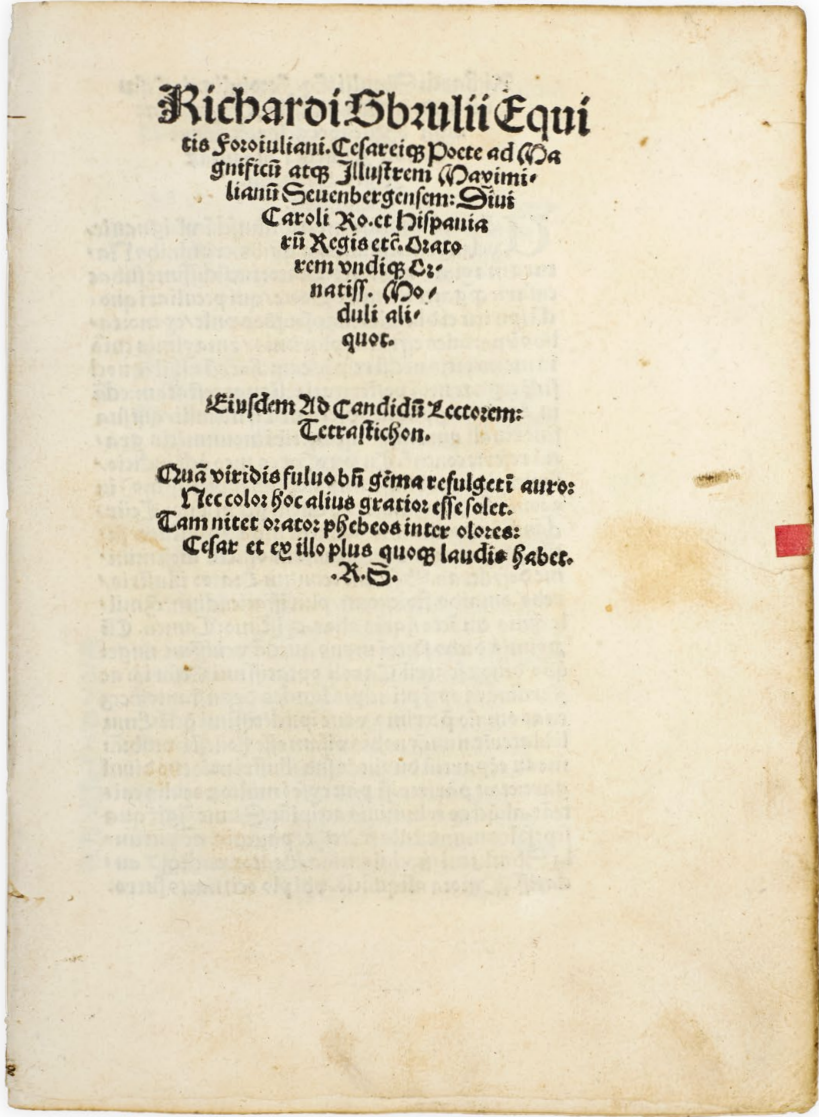 Richardi Sbrulii Equi
tis Foroiuliani. Cesareiqꝫ Poete ad Ma
gnificū atqꝫ Illustrem Maximi⸗
lianū Seuenbergensem: Diui
Caroli Ro. et Hispania
rū Regis etc̄. Orato
rem vndiqꝫ Or⸗
natiss. Mo⸗
duli ali⸗
quot.
Eiusdem Ad Candidū Lectorem:
Tetrastichon.
Quā viridis fuluo bn̄ gēma refulget ī auro:
Nec color hoc alius gratior esse solet.
Tam nitet orator phebeos inter olores:
Cesar et ex illo plus quoqꝫ laudis habet.
.R.S.